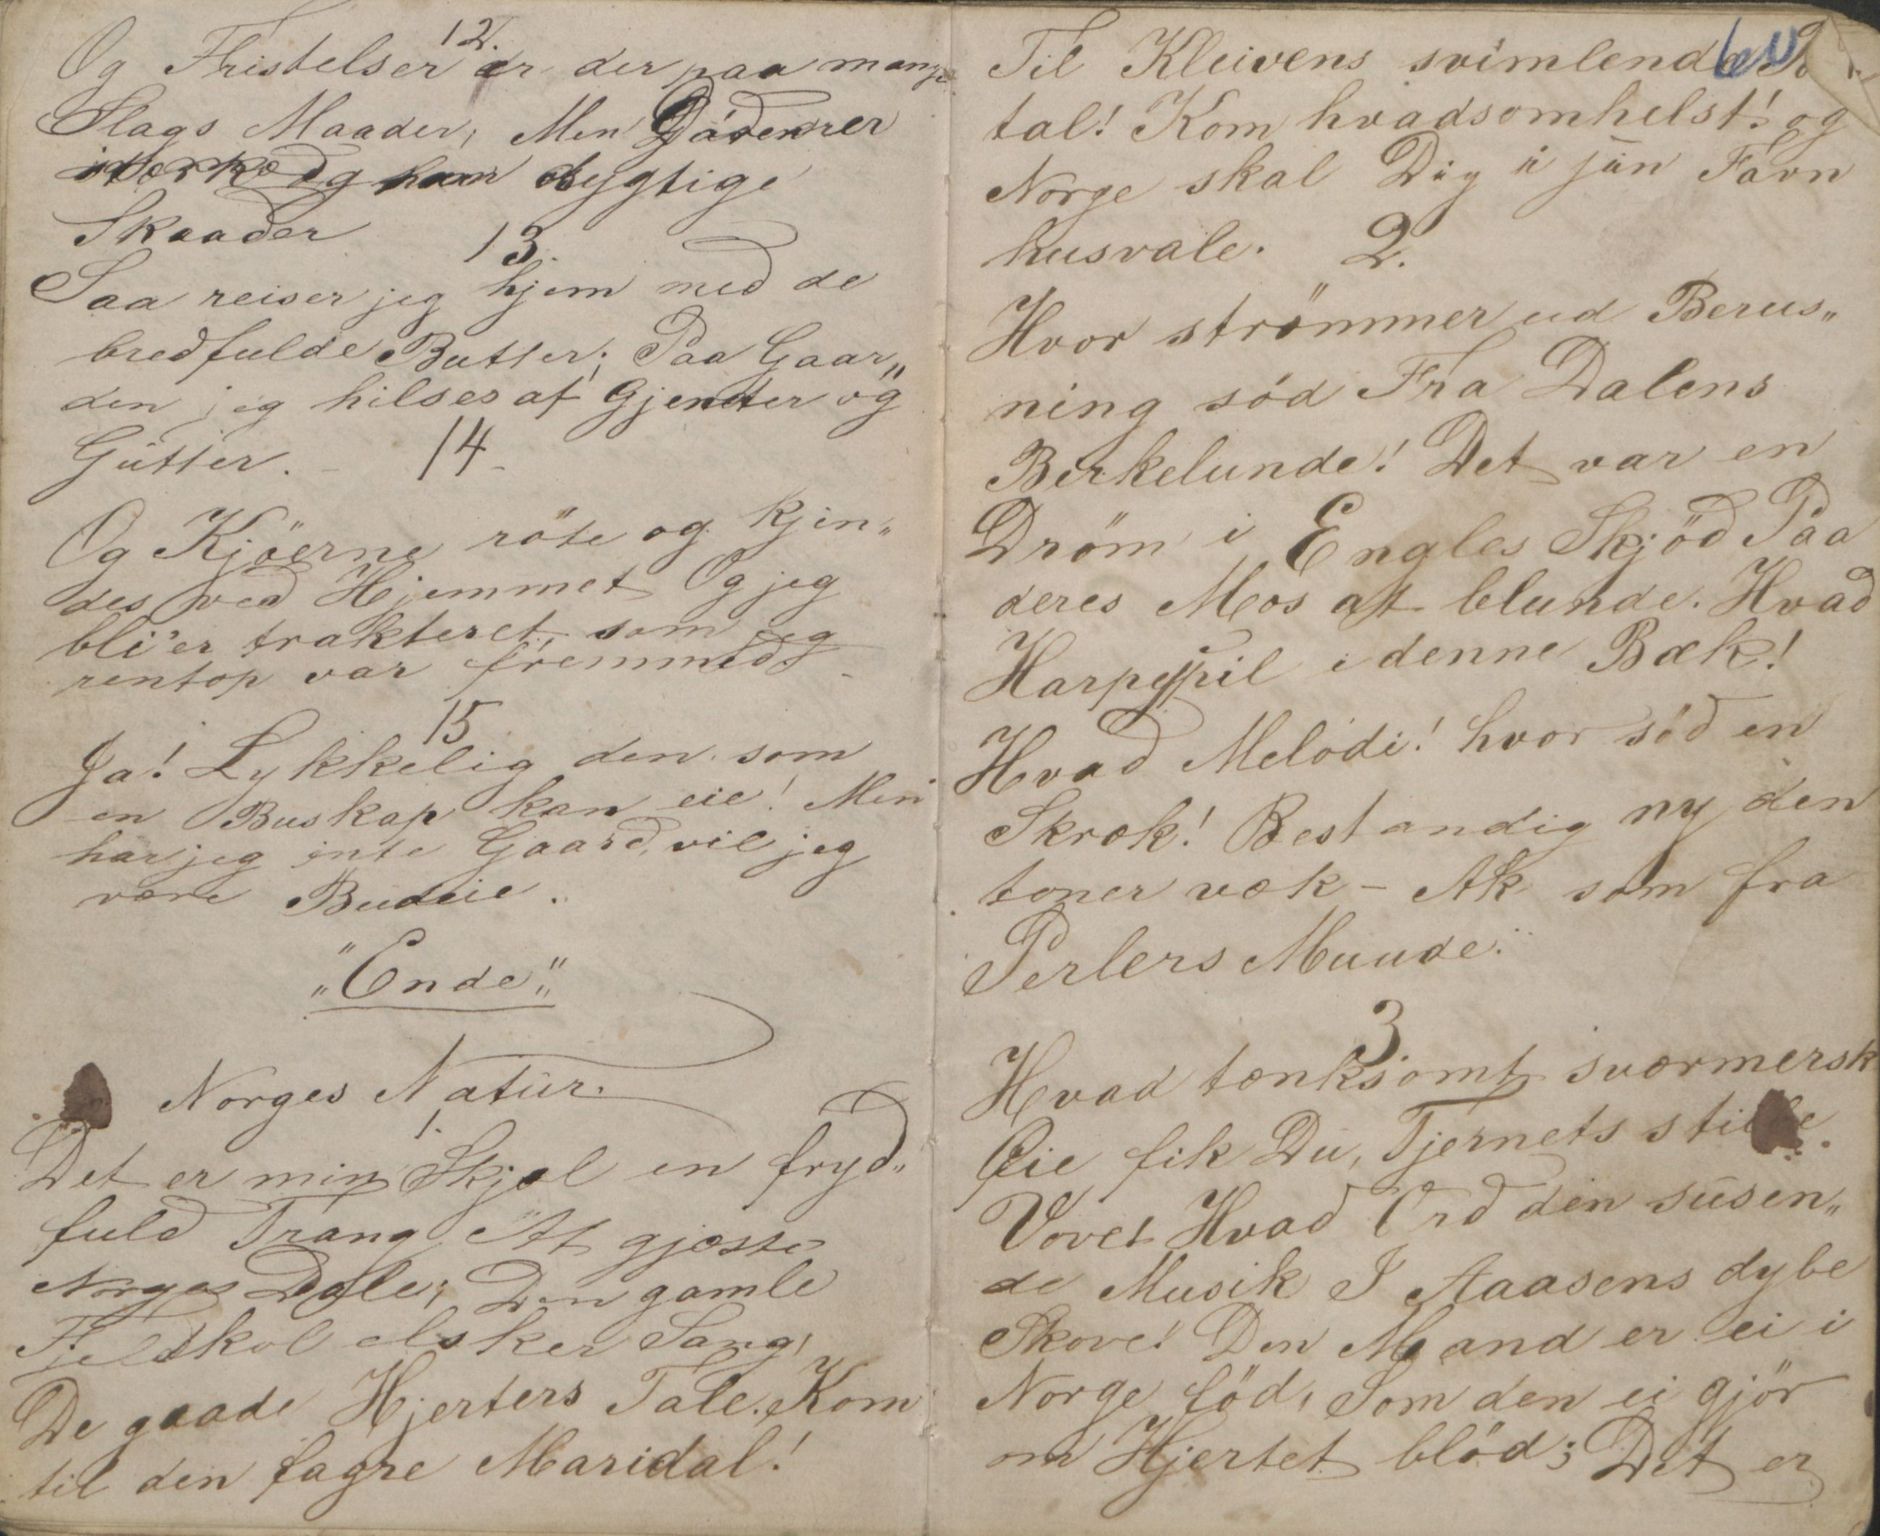 12.
Og Fristelser er der paa mange
Slags Maader, Men Døren er
stærk og har dygtige
Skaader
13.
Saa reiser jeg hjem med de
bredfulde Butter; Paa Gaar„
den jeg hilses af Gjenter og
Gutter. -
14-
Og Kjöerne röte og kjin„
des ved Hjemmet Og jeg
bli'er trakteret som jeg
rentop var fremmed -
15
Ja! Lykkelig den som
en Buskap kan eie! Men
har jeg inte Gaard, vil jeg
være Budeie.
„Ende„
Norges Natur.
1.
Det er min Skjæl en fryd„
fuld Trang At gjæste
Norges Dale; Den gamle
Fjeldkol elsker Sang,
De graade Hjerters Tale. Kom
til den fagre Maridal!
60
Til Kleivens svimlende
tal! Kom hvadsomhelst! og
Norge skal Dig i sin Favn
husvale.
2.
Hvor strömmer ud Berus„
ning söd Fra Dalens
Berkelunde! Det var en
Dröm i Engles Skjöd Paa
deres Mos at blunde. Hvad
Harpespil i denne Bæk!
Hvad Melodi! hvor söd en
Skræk! Bestandig ny den
toner væk - Ak som fra
Perlers Munde.
3.
Hvad tænksomt sværmersk
Öie fik Du, Tjernets stille
Vove! Hvad Ord den susen„
de Musik I Aaasens dybe
Skove! Den Mand er ei i
Norge föd, Som den ei gjör
om Hjertet blöd; Det er